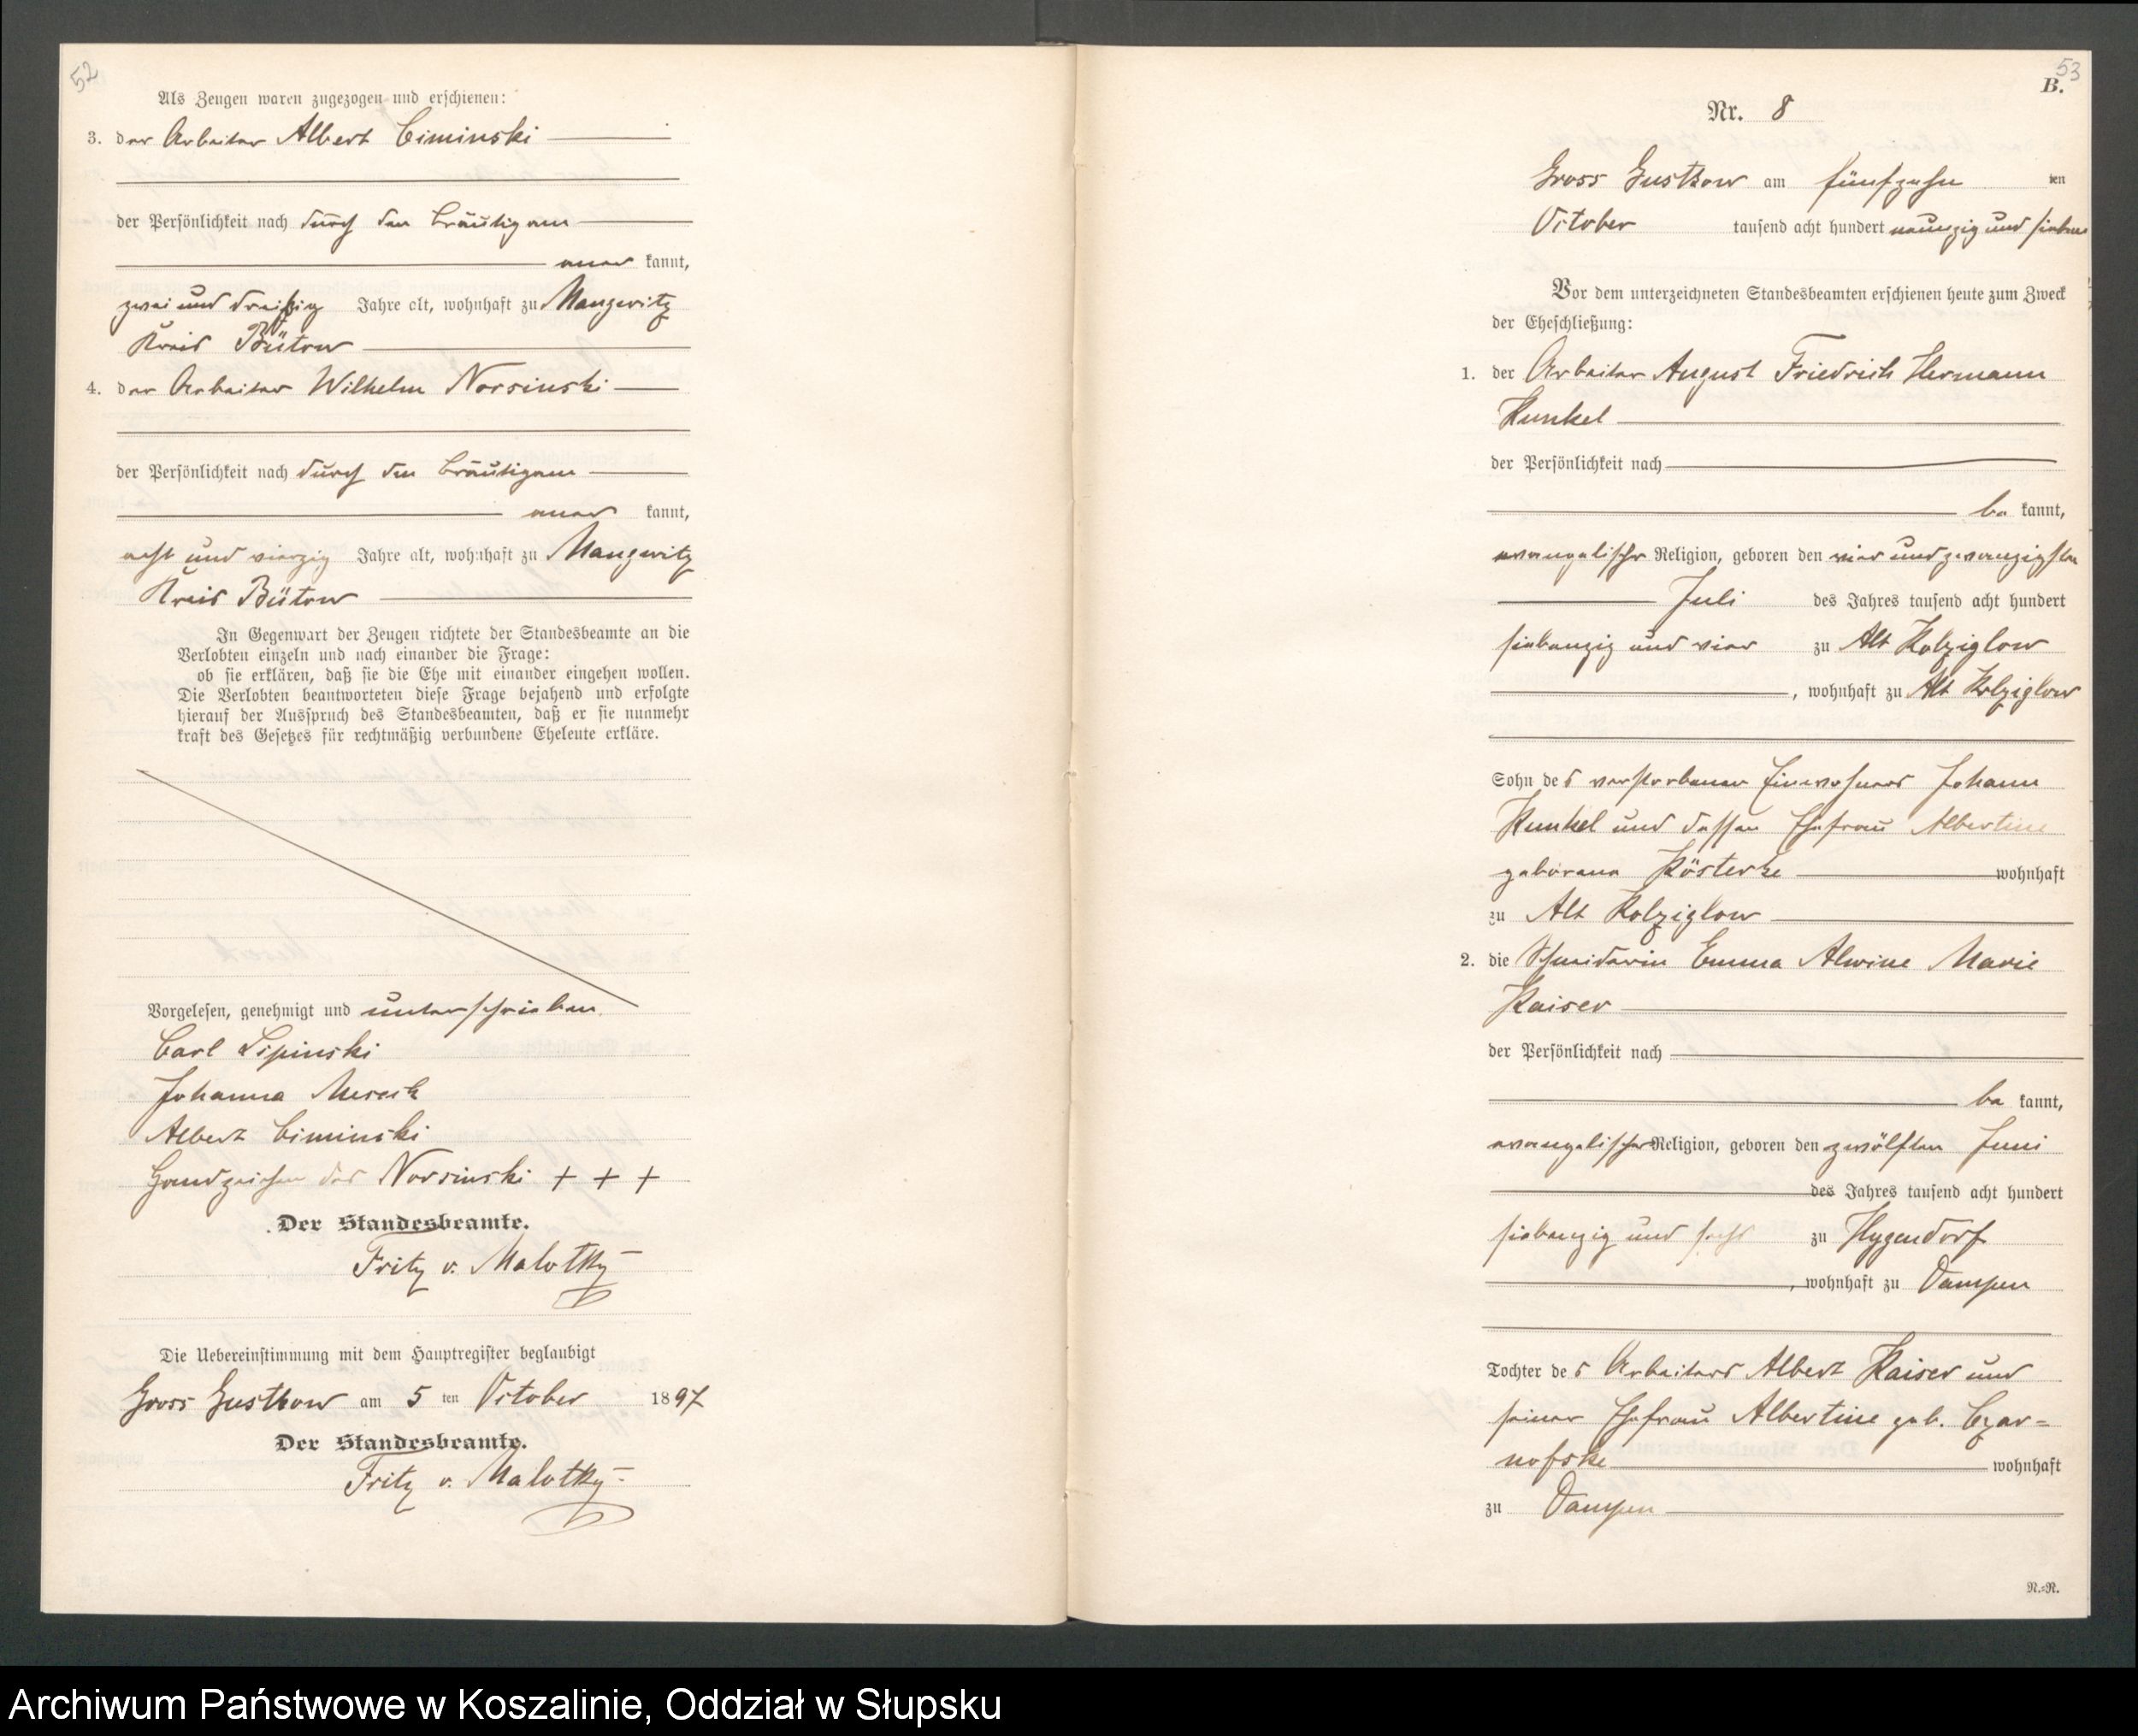 52
Als Zeugen waren zugezogen und erschienen:
3. der Arbeiter Albert Ciminski
der Persönlichkeit nach durch den Bräutigam
aner kannt,
zwei und dreißig Jahre alt, wohnhaft zu Mangwitz
Kreis Bütow
4. der Arbeiter Wilhelm Norsinski
der Persönlichkeit nach durch den Bräutigam
aner kannt,
acht und vierzig Jahre alt, wohnhaft zu Mangwitz
Kreis Bütow
In Gegenwart der Zeugen richtete der Standesbeamte an die
Verlobten einzeln und nach einander die Frage:
ob sie erklären, daß sie die Ehe mit einander eingehen wollen.
Die Verlobten beantworteten diese Frage bejahend und erfolgte
hierauf der Ausspruch des Standesbeamten, daß er sie nunmehr
kraft des Gesetzes für rechtmäßig verbundene Eheleute erkläre.
Vorgelesen, genehmigt und unterschrieben
Carl Lipinski
Johanna
Albert Ciminski
Handzeichen des Norsinski + + +
Der Standesbeamte.
Fritz v. Malottky
Die Uebereinstimmung mit dem Hauptregister beglaubigt
Gross Gustkow am 5 ten October 1897
Der Standesbeamte.
Fritz v. Malottky
53
B.
Nr. 8
Gross Gustkow am fünfzehn ten
October tausend acht hundert neunzig und sieben
Vor dem unterzeichneten Standesbeamten erschienen heute zum Zweck
der Eheschließung:
1. der Arbeiter August Friedrich Hermann
Kunkel
der Persönlichkeit nach
be kannt,
evangelischer Religion, geboren den vier und zwanzigsten
Juli des Jahres tausend acht hundert
siebenzig und vier zu Alt Kolziglow
, wohnhaft zu Alt Kolziglow
Sohn des verstorbenen Einwohners Johann
Kunkel und dessen Ehefrau Albertine
geborene Kösterke wohnhaft
zu Alt Kolziglow
2. die Schneiderin Emma Alwine Marie
Kaiser
der Persönlichkeit nach
be kannt,
evangelischer Religion, geboren den zwölften Juni
des Jahres tausend acht hundert
siebenzig und sechs zu Hygendorf
, wohnhaft zu Dampen
Tochter des Arbeiters Albert Kaiser und
seiner Ehefrau Albertine geb. Czar=
nofske wohnhaft
zu Dampen
N.=N.
Archiwum Państwowe w Koszalinie, Oddział w Słupsku